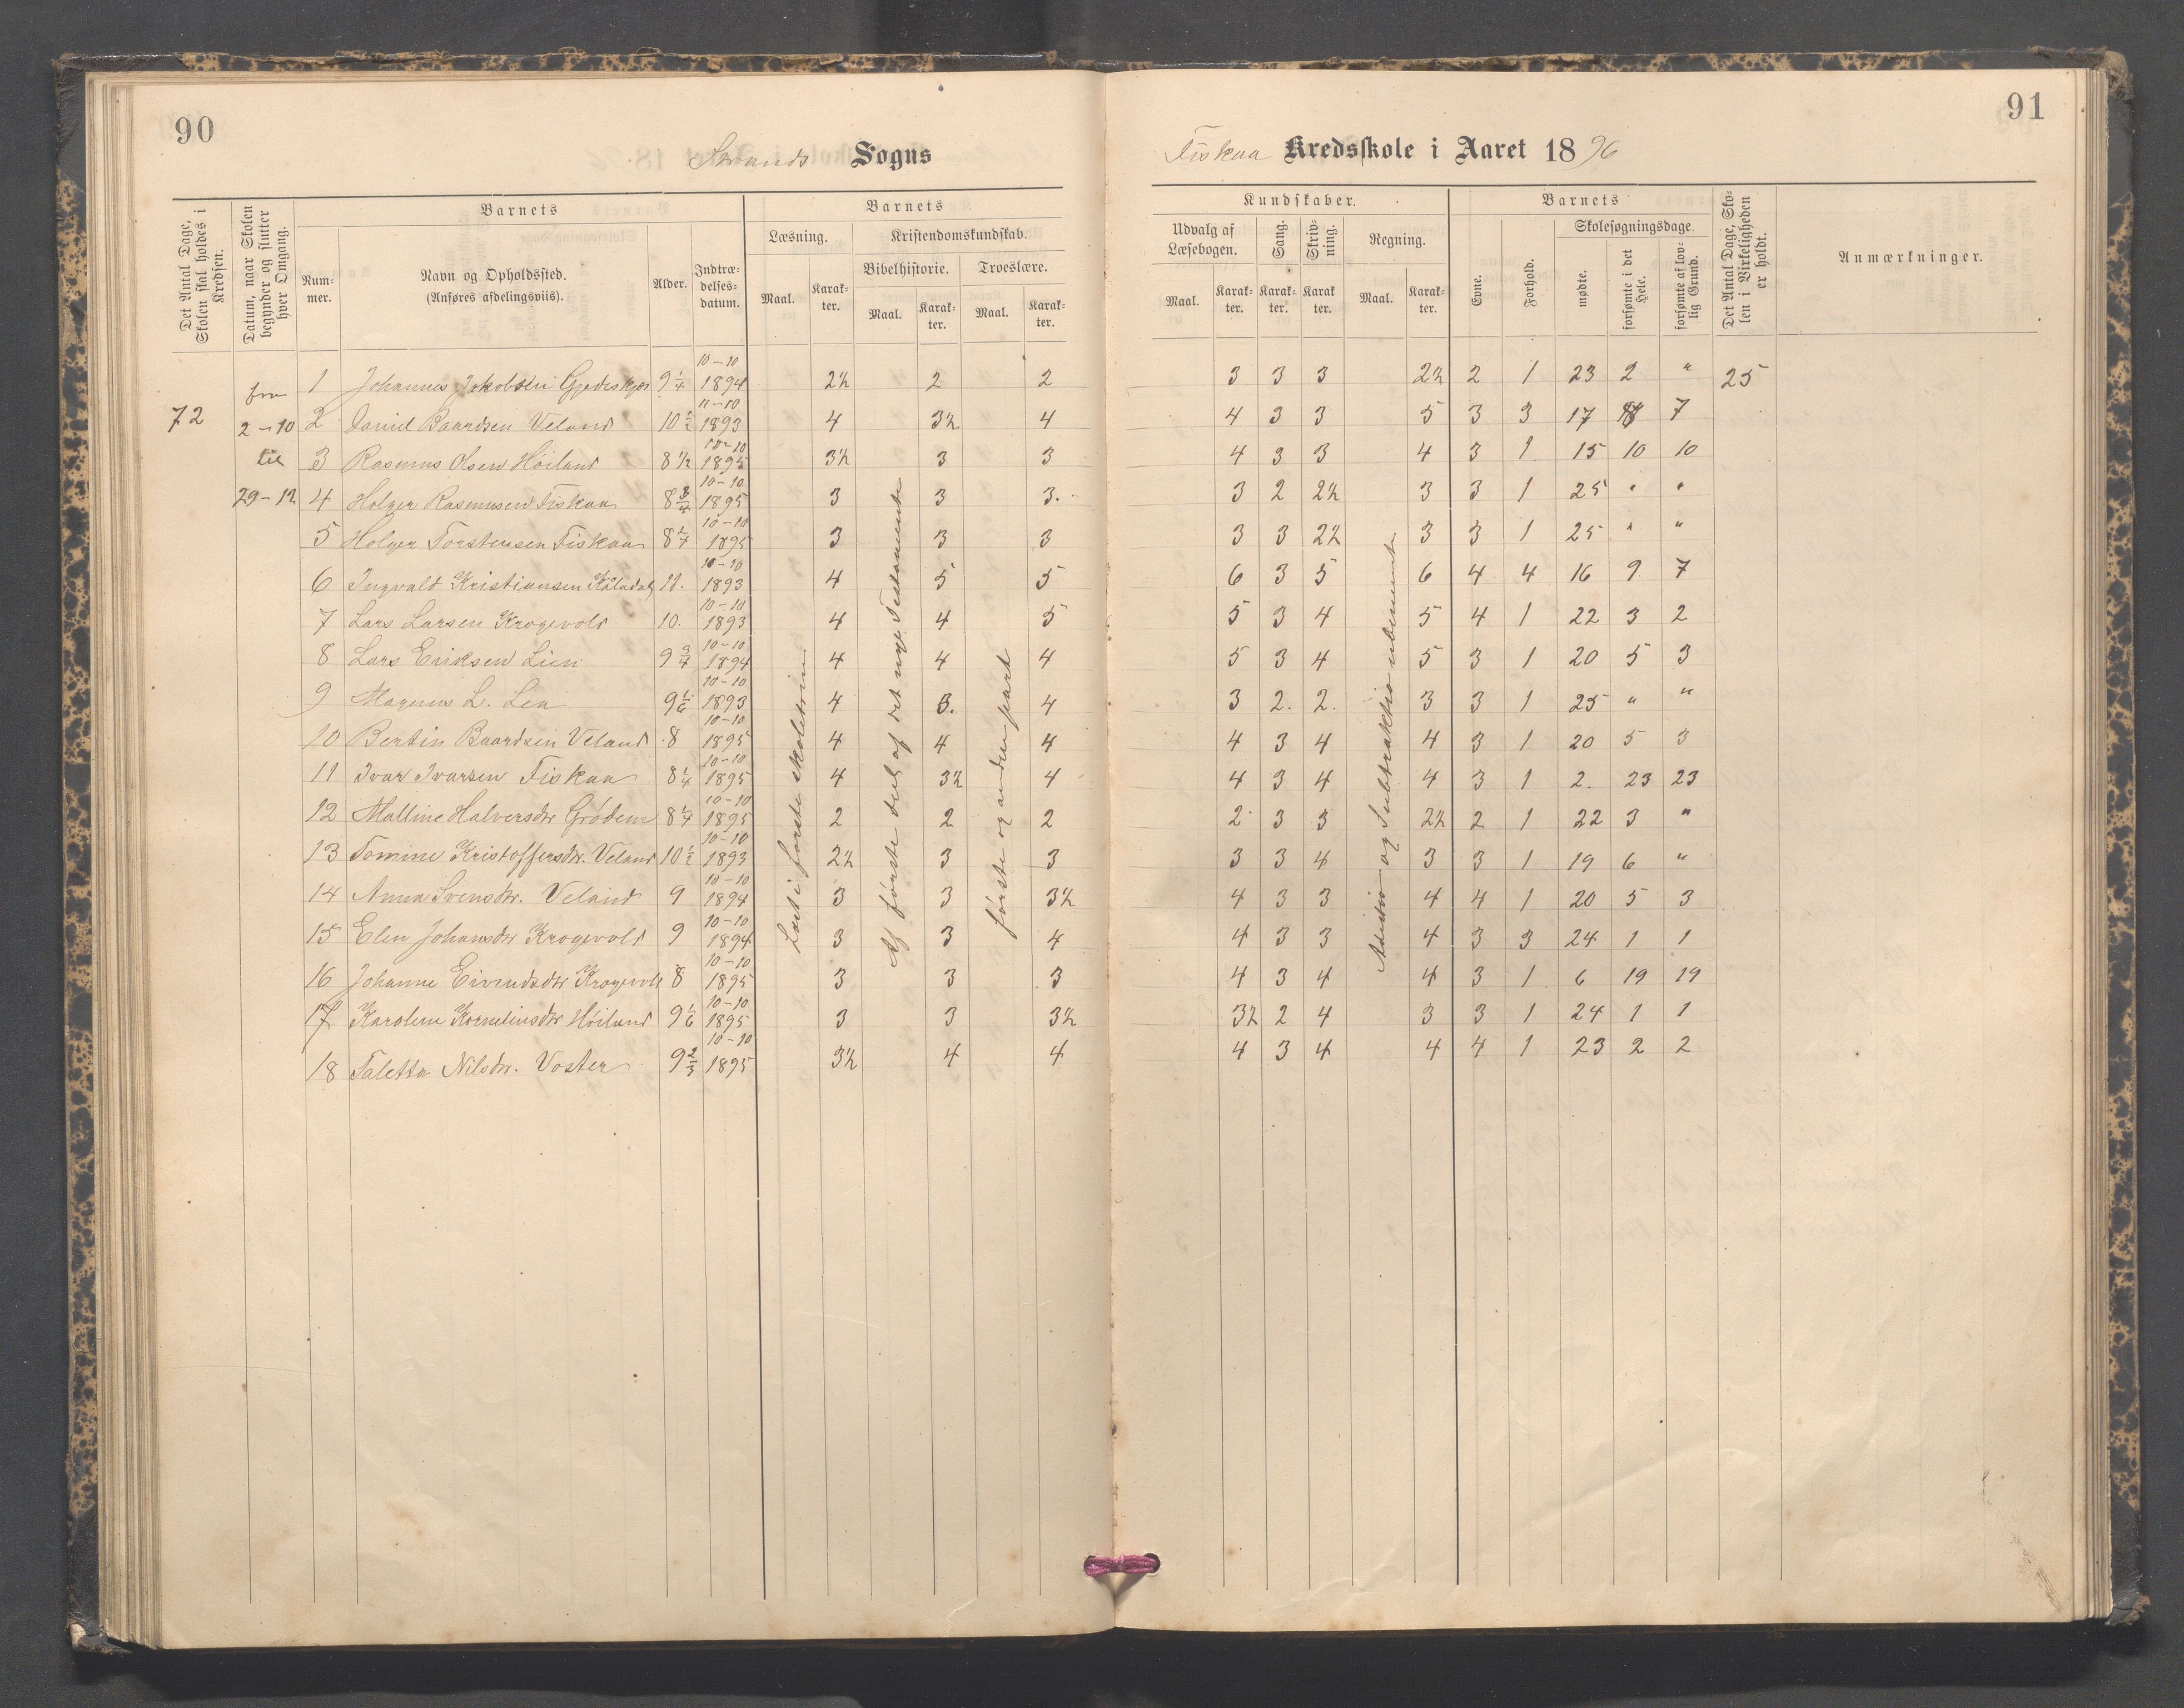 90
Strands Sogns
Det Antal Dage, Skolen skal holdes i Kredsen.
Datum, naar Skolen begynder og slutter hver Omgang.
Barnets
Nummer.
Navn og Opholdssted.
(Anføres afdelingsviis).
Alder.
Indtrædelsesdatum.
Barnets
Læsning.
Kristendomskundskab.
Bibelhistorie.
Troeslære.
Maal.
Karakter.
Maal.
Karakter.
Maal.
Karakter.
72
fra
2-10
til
29-12
1 Johannes Jakobsen 9 1/4 10-10 1894 2½ 2 2
2 Daniel Baardsen Veland 10 1/2 11-10 1893 4 3½ 4
3 Rasmus Olsen Höiland 8 1/2 10-10 1895 3½ 3 3
4 Holger Rasmussen Fiskaa 8 3/4 10-10 1895 3 3 3.
5 Holger Torstensen Fiskaa 8 1/4 10-10 1895 3 3 3
6 Ingvald Kristiansen 11. 10-10 1893 4 5 5
7 Lars Larsen Krogevold 10. 10-10 1893 4 4 5
8 Lars Eriksen Lien 9 3/4 10-10 1894 4 4 4
9 Magnus L. Lea 9 1/6 10-10 1893 4 3. 4
10 Bertin Baardsen Veland 8 10-10 1895 4 4 4
11 Ivar Ivarsen Fiskaa 8 1/4 10-10 1895 4 3½ 4
12 Malline Halversdtr Grödem 8 1/4 10-10 1895 2 2 2
13 Tomine Kristoffersdtr. Veland 10 1/2 10-10 1893 2½ 3 3
14 Anna Svensdtr. Veland 9 10-10 1894 3 3 3½
15 Elen Johansdtr Krogevold 9 10-10 1894 3 3 4
16 Johanne Eivindsdtr Krogevold 8 10-10 1895 3 3 3
17 Karoline Korneliusdtr Höiland 9 1/6 10-10 1895 3 3 3½
18 Taletta Nilsdtr. Voster 9 2/3 10-10 1895 3½ 4 4
Læst i første skoletrin
Af første deel af det nye Testamente
første og anden part
91
Fiskaa Kredsskole i Aaret 1896
Kundskaber.
Udvalg af Læsebogen.
Sang.
Skrivning.
Regning.
Maal.
Karakter.
Karakter.
Karakter.
Maal.
Karakter.
Barnets
Evne.
Forhold.
Skolesøgningsdage.
mødte.
forsømte i det Hele.
forsømte af lovlig Grund.
Det Antal Dage, Skolen i Virkeligheden er holdt.
Anmærkninger.
3 3 3 2½ 2 1 23 2 " 25
4 3 3 5 3 3 17 7
4 3 3 4 3 1 15 10 10
3 2 2½ 3 3 1 25 " "
3 3 2½ 3 3 1 25 " "
6 3 5 6 4 4 16 9 7
5 3 4 5 4 1 22 3 2
5 3 4 5 3 1 20 5 3
3 2. 2. 3 3 1 25 " "
4 3 4 4 3 1 20 5 3
4 3 4 4 3 1 2. 23 23
2 3 3 2½ 2 1 22 3 "
3 3 4 3 3 1 19 6 "
4 3 3 4 4 1 20 5 3
4 3 3 4 3 3 24 1 1
4 3 4 4 3 1 6 19 19
3½ 2 4 3 3 1 24 1 1
4 3 4 4 4 1 23 2 2
Addition og Subtraktion ubenævnt